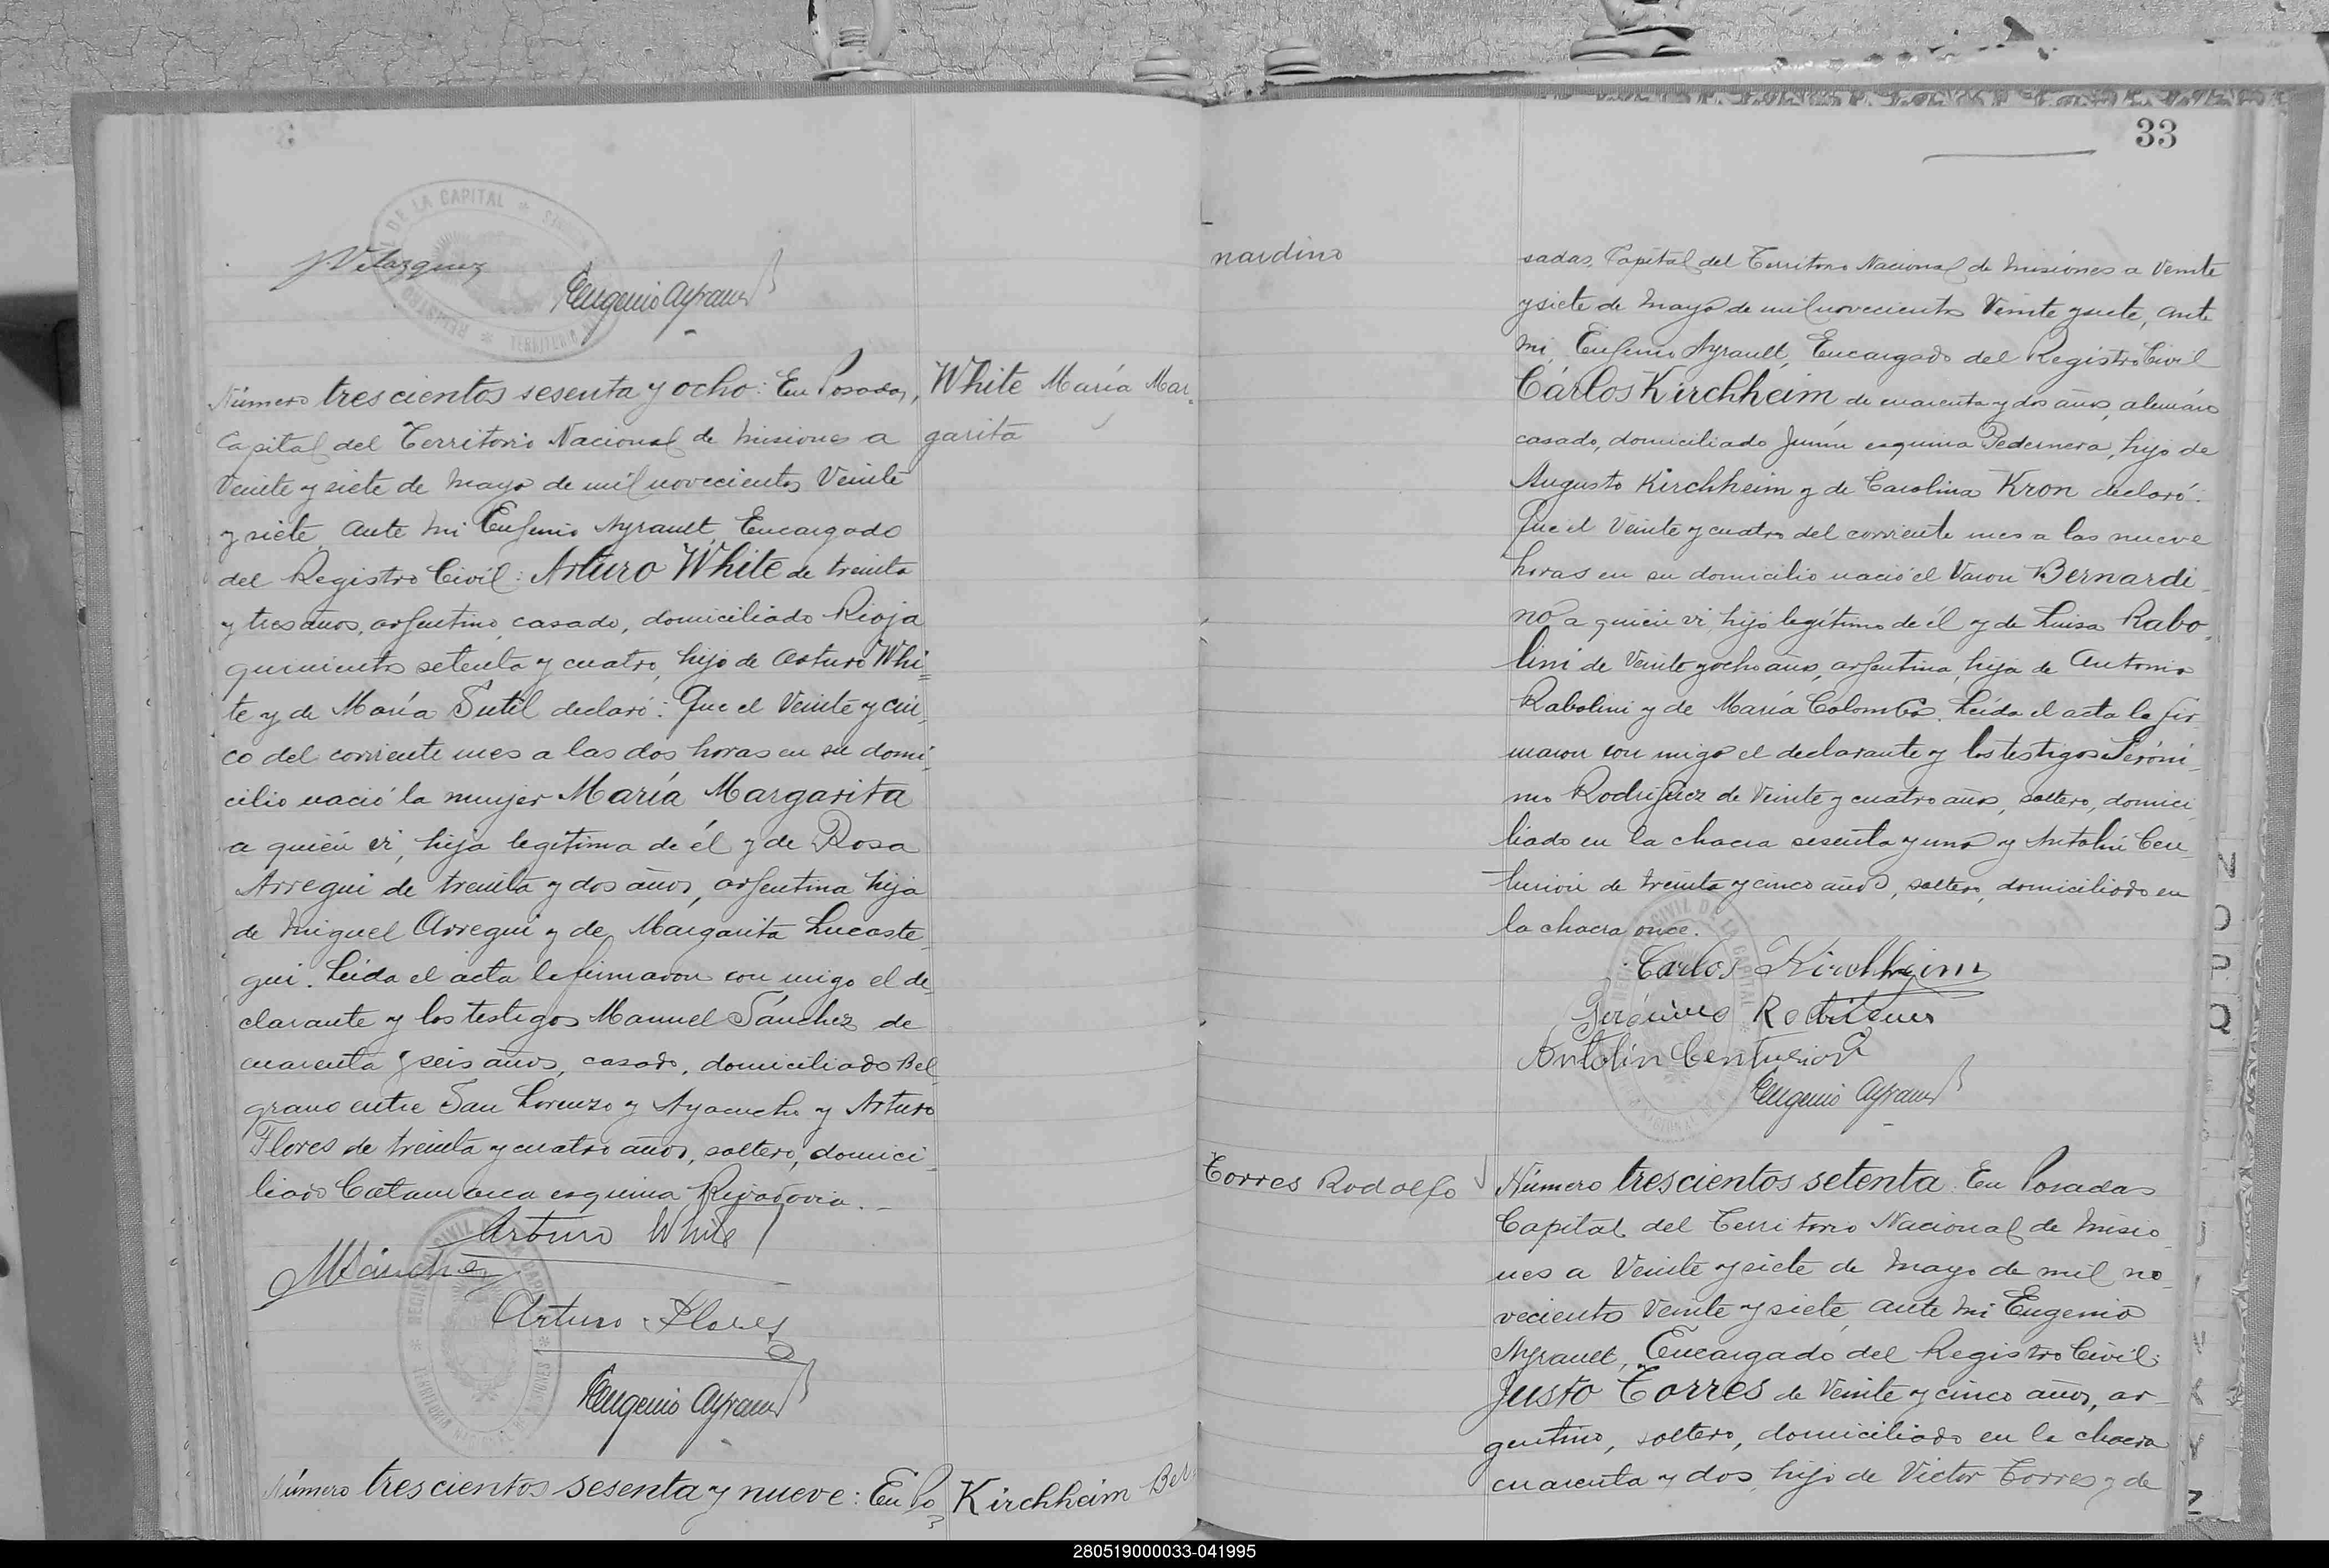 J. Velazquez
Eugenio Ayrault
Número trescientos sesenta y ocho: En Posadas,
Capital del Territorio Nacional de Misiones a
Veinte y siete de Mayo de mil novecientos Veinte
y siete, ante mi Eugenio Ayrault, Encargado
del Registro Civil: Arturo White de treinta
y tres años, argentino, casado, domiciliado Rioja
quinientos setenta y cuatro, hijo de Arturo Whi=
te y de María Sutil declaró: Que el Veinte y cin-
co del corriente mes a las dos horas en su domi-
cilio nació la mujer María Margarita
a quién vi, hija legítima de él y de Rosa
Arregui de treinta y dos años, argentina hija
de Miguel Arregui y de Margarita Lucaste-
gui. Leída el acta la firmaron con migo el de-
clarante y los testigos Manuel Sánchez de
cuarenta y seis años, casado, domiciliado Bel-
grano entre San Lorenzo y Ayacucho y Arturo
Flores de treinta y cuatro años, soltero, domici-
liado Catamarca esquina Rivadavia.
Arturo White
M Sánchez
Arturo Flores
Eugenio Ayrault
Número trescientos sesenta y nueve: En Po-
White María Mar-
garita
Kirchheim Ber
REGISTRO CIVIL DE LA CAPITAL
TERRITORIO NACIONAL DE MISIONES
33
nardino
sadas, Capital del Territorio Nacional de Misiones a Veinte
y siete de Mayo de mil novecientos Veinte y siete, ante
mi, Eugenio Ayrault, Encargado del Registro Civil
Cárlos Kirchheim de cuarenta y dos años, alemán
casado, domiciliado Junín esquina Pedernera, hijo de
Augusto Kirchheim y de Carolina Kron declaró:
Que el Veinte y cuatro del corriente mes a las nueve
horas en su domicilio nació el Varon Bernardi-
no a quién vi, hijo legítimo de él y de Luisa Rabo-
lini de Veinte y ocho años, argentina, hija de Antonio
Rabolini y de María Colombo. Leída el acta la fir-
maron con migo el declarante y los testigos Jeróni-
mo Rodriguez de Veinte y cuatro años, soltero, domici-
liado en la chacra sesenta y uno y Antolin Cen-
turión de treinta y cinco años, soltero, domiciliado en
la chacra once.
Carlos Kirchheim
Gerónimo Rodriguez
Antolin Centurion
Eugenio Ayrault
Torres Rodolfo
Número trescientos setenta: En Posadas
Capital del Territorio Nacional de Misio-
nes a Veinte y siete de Mayo de mil no-
vecientos Veinte y siete, ante mi Eugenio
Ayrault, Encargado del Registro Civil:
Justo Torres de Veinte y cinco años, ar-
gentino, soltero, domiciliado en la chacra
cuarenta y dos, hijo de Victor Torres y de
N
O
P
Q
Z
280519000033-041995